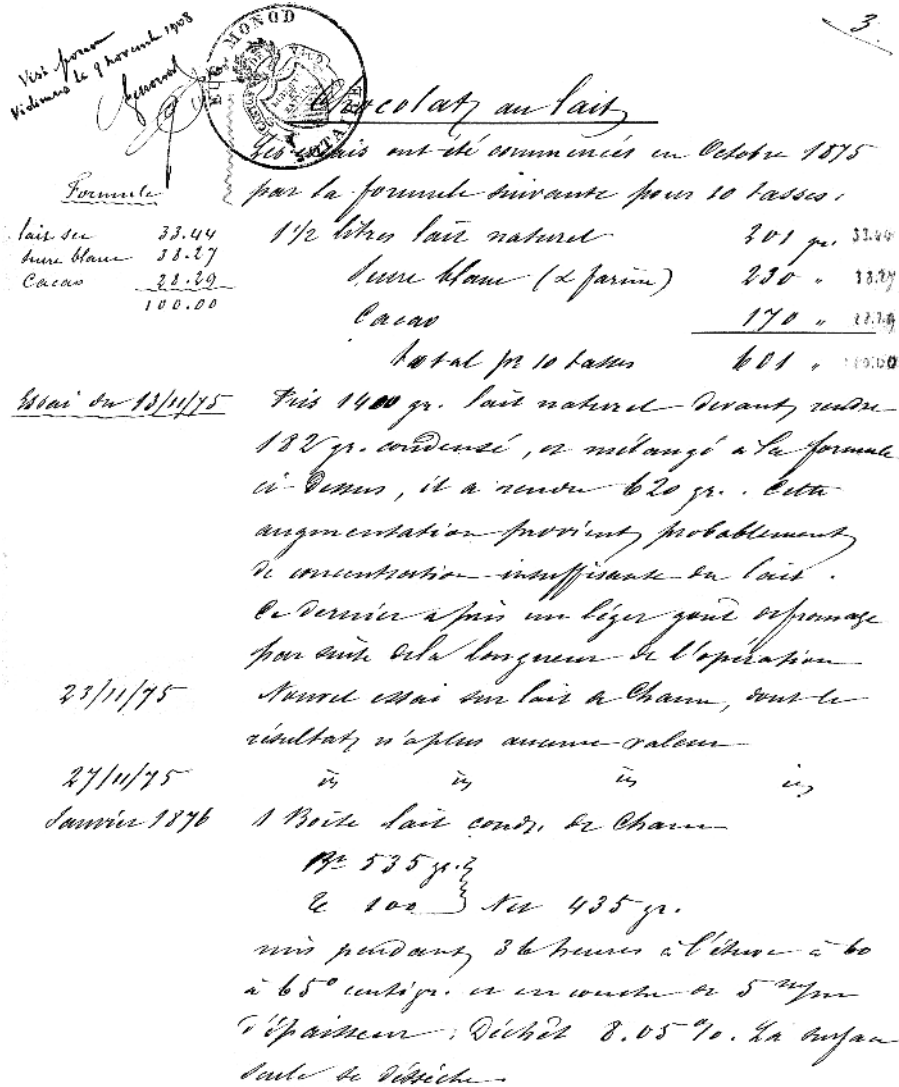 3.
Visé pour
Vidimus le 9 novembre 1908
MONOD
NOTAIRE
Chocolat au lait
Les essais ont été commencés en Octobre 1875
par la formule suivante pour 10 tasses:
Formule
lait sec 33.44
sucre blanc 38.27
Cacao 28.29
100.00
1 1/2 litres lait naturel 201 gr. 33.44
Sucre blanc (& farine) 230 " 38.27
Cacao 170 " 28.29
total pr 10 tasses 601 " 100.00
Essai du 13/11/75
Pris 1400 gr. lait naturel devant rendre
182 gr. condensé, et mélangé à la formule
ci-dessus, il a rendu 620 gr.. Cette
augmentation provient probablement
de concentration insuffisante du lait.
Ce dernier a pris un léger goût de fromage
par suite de la longueur de l'opération
23/11/75 Nouvel essai sur lait de Cham, dont le
résultat n'a plus aucune valeur
27/11/75 id id id id
Janvier 1876 1 Boîte lait cond. de Cham
Bt 535 gr.
Te 100 } Net 435 gr.
mis pendant 36 heures à l'étuve à 60
à 65° centigr. et en couche de 5 m/m
d'épaisseur: Déchêt 8.05 %. La surface
seule se dessèche